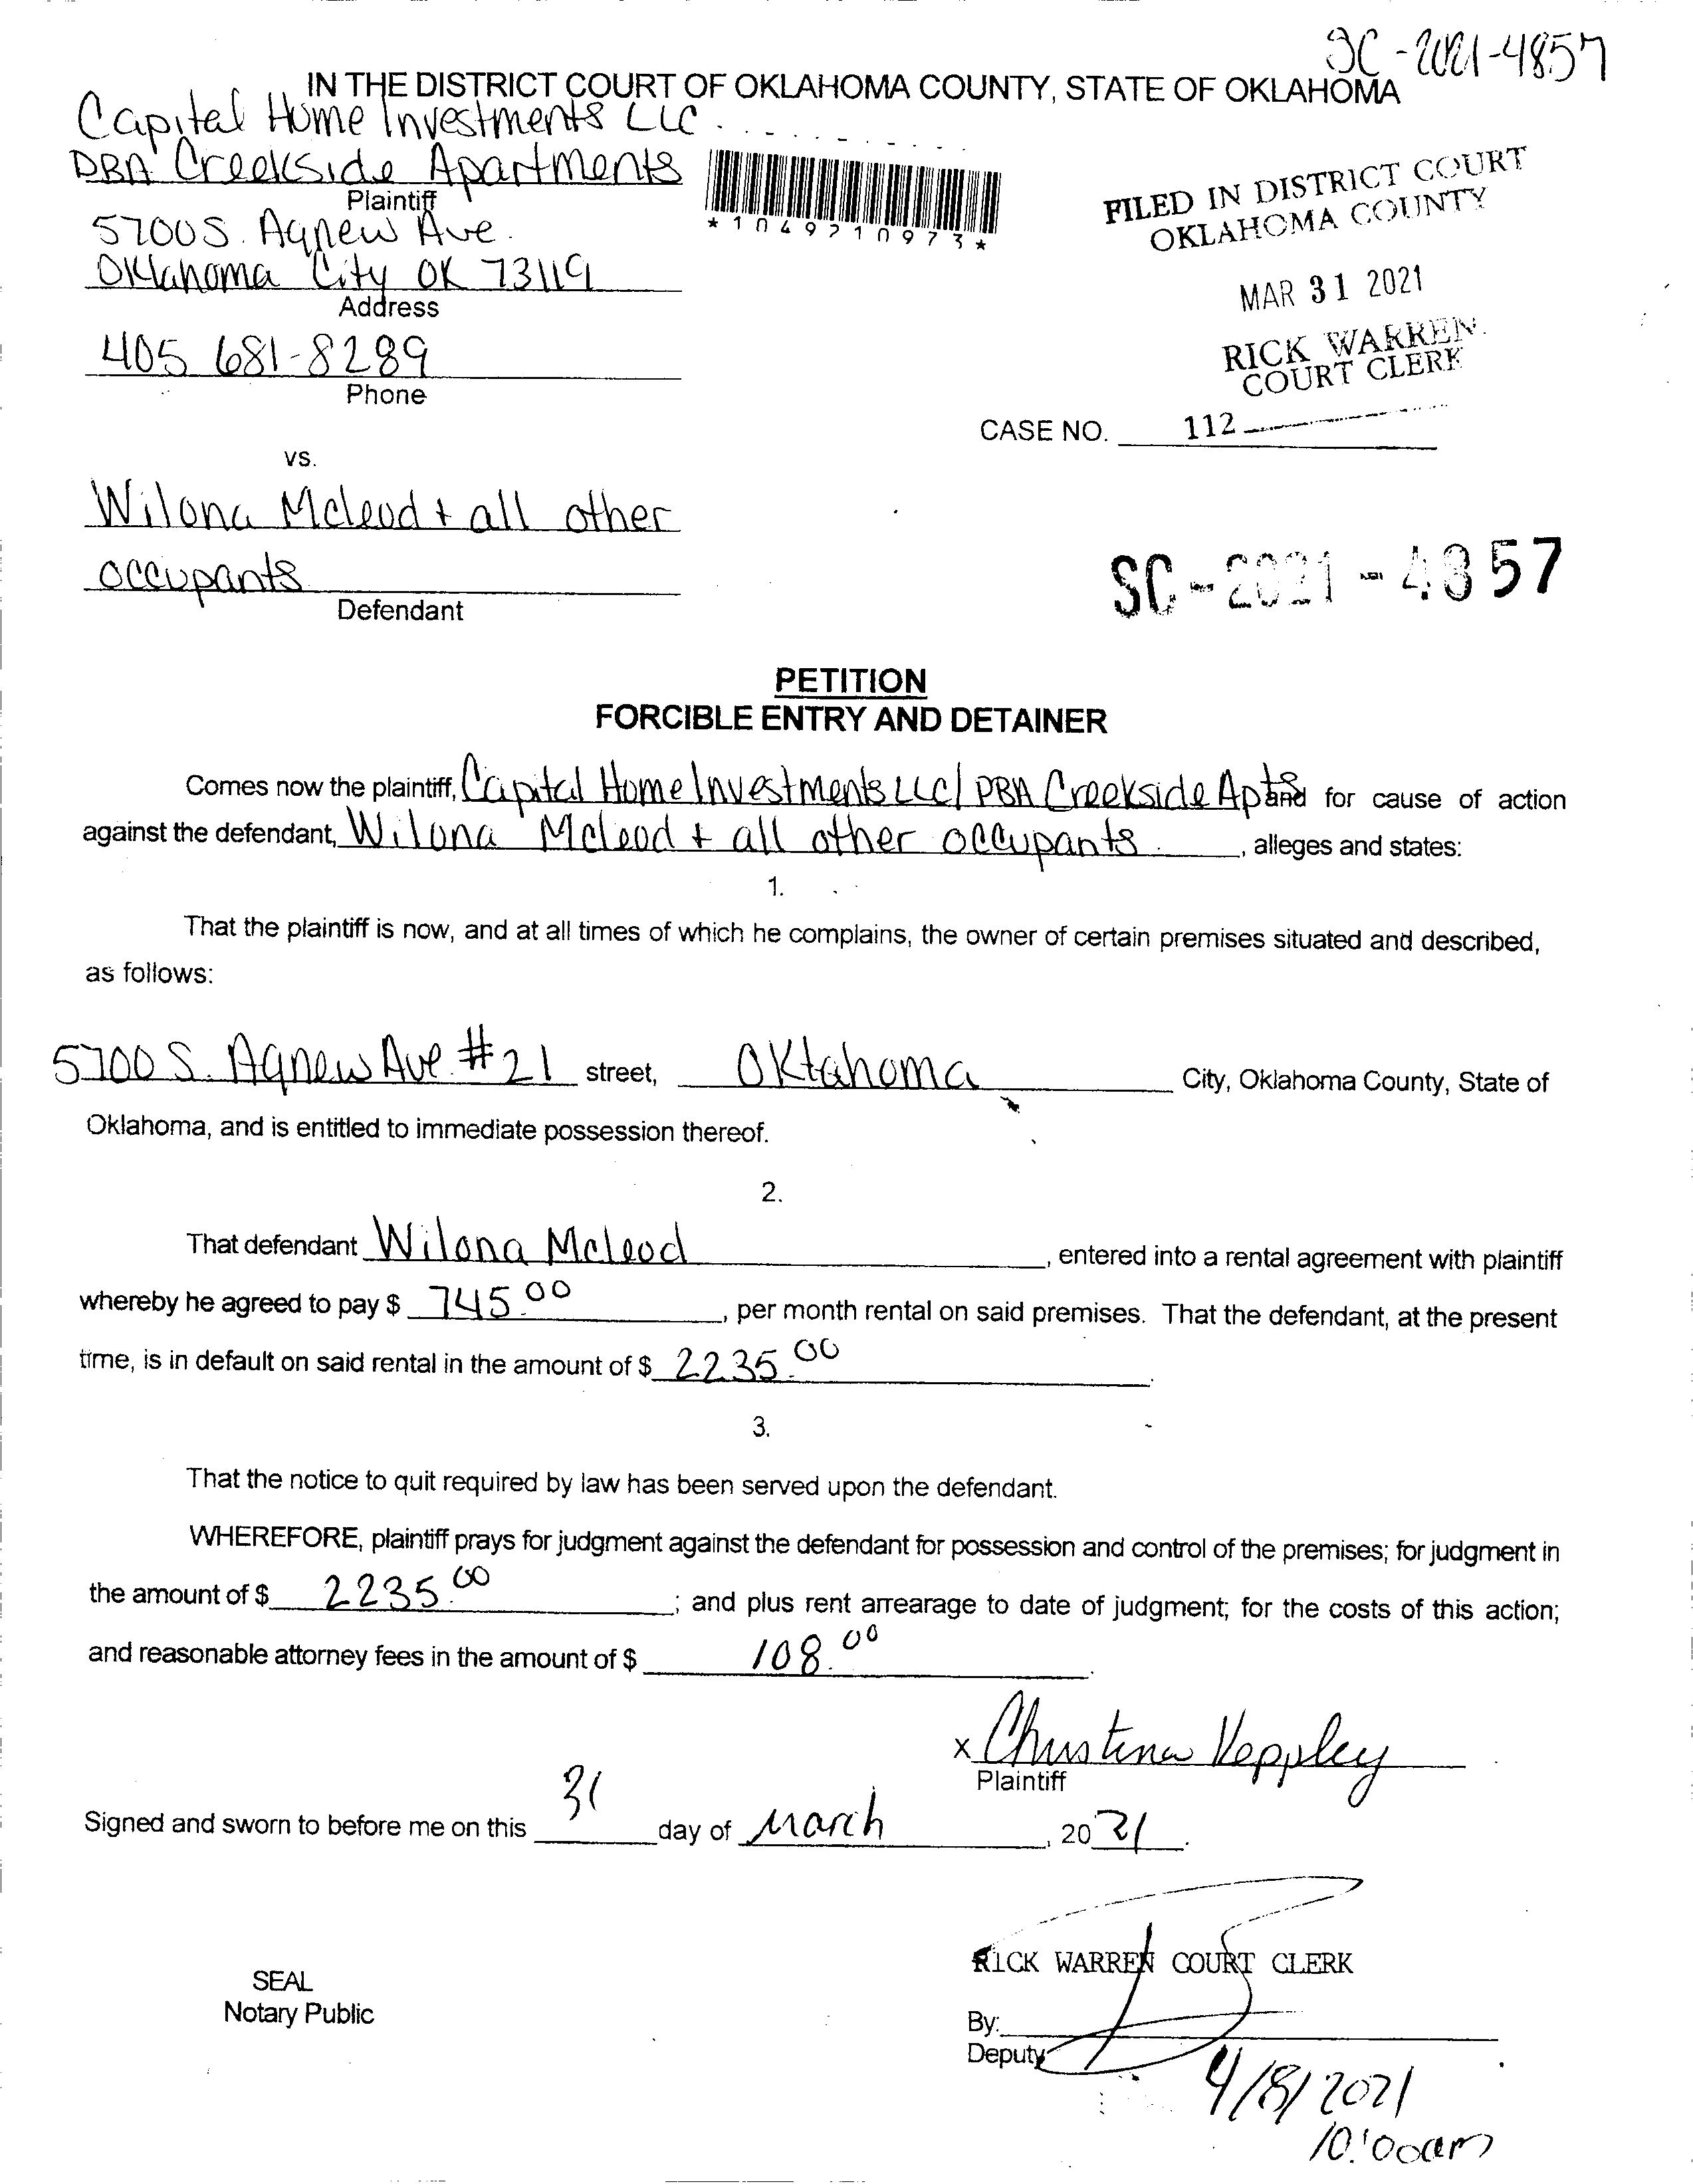 SC-2021-4857
IN THE DISTRICT COURT OF OKLAHOMA COUNTY, STATE OF OKLAHOMA
Capital Home Investments LLC
DBA Creekside Apartments
Plaintiff
5700 S. Agnew Ave.
Oklahoma City OK 73119
Address
405 681-8289
Phone
*1049210973*
FILED IN DISTRICT COURT
OKLAHOMA COUNTY
MAR 31 2021
RICK WARREN
COURT CLERK
CASE NO. 112
vs.
Wilona Mcleod + all other
occupants
Defendant
SC-2021-4857
PETITION
FORCIBLE ENTRY AND DETAINER
Comes now the plaintiff, Capital Home Investments LLC/ DBA Creekside Apts and for cause of action
against the defendant, Wilona Mcleod + all other occupants, alleges and states:
1.
That the plaintiff is now, and at all times of which he complains, the owner of certain premises situated and described,
as follows:
5700 S. Agnew Ave. #21 street, Oklahoma City, Oklahoma County, State of
Oklahoma, and is entitled to immediate possession thereof.
2.
That defendant Wilona Mcleod, entered into a rental agreement with plaintiff
whereby he agreed to pay $ 745.00, per month rental on said premises. That the defendant, at the present
time, is in default on said rental in the amount of $ 2235.00.
3.
That the notice to quit required by law has been served upon the defendant.
WHEREFORE, plaintiff prays for judgment against the defendant for possession and control of the premises; for judgment in
the amount of $ 2235.00; and plus rent arrearage to date of judgment; for the costs of this action;
and reasonable attorney fees in the amount of $ 108.00.
x Christina Keppley
Plaintiff
Signed and sworn to before me on this 31 day of March, 2021.
RICK WARREN COURT CLERK
SEAL
Notary Public
By:
Deputy
4/8/2021
10:00am